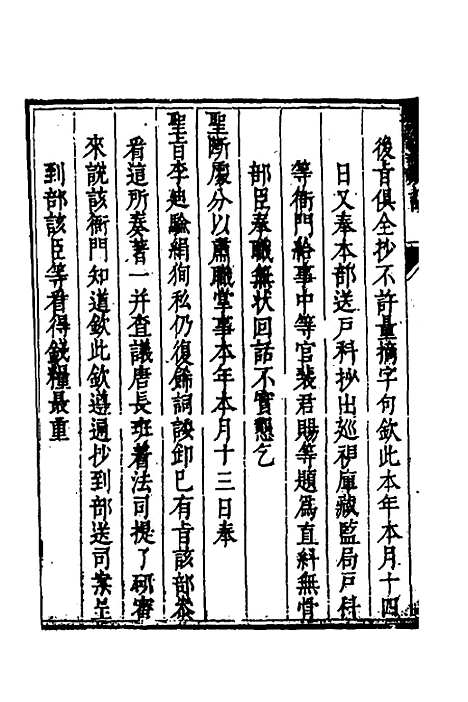 後旨俱全抄不許量摘字句欽此本年本月十四
日又奉本部送戸科抄出巡視庫藏監局戸科
等衙門給事中等官裴君賜等題爲直糾無骨
部臣奉職無状回話不實懇乞
聖斷處分以肅職掌事本年本月十三日奉
聖旨李 驗絹徇私仍復餙詞諉卸已有旨該部叅
看這所奏著一并查議唐長班着法司提了 審
來說該衙門知道欽此欽遵逓抄到部送司案呈
到部該臣等看得錢糧最重